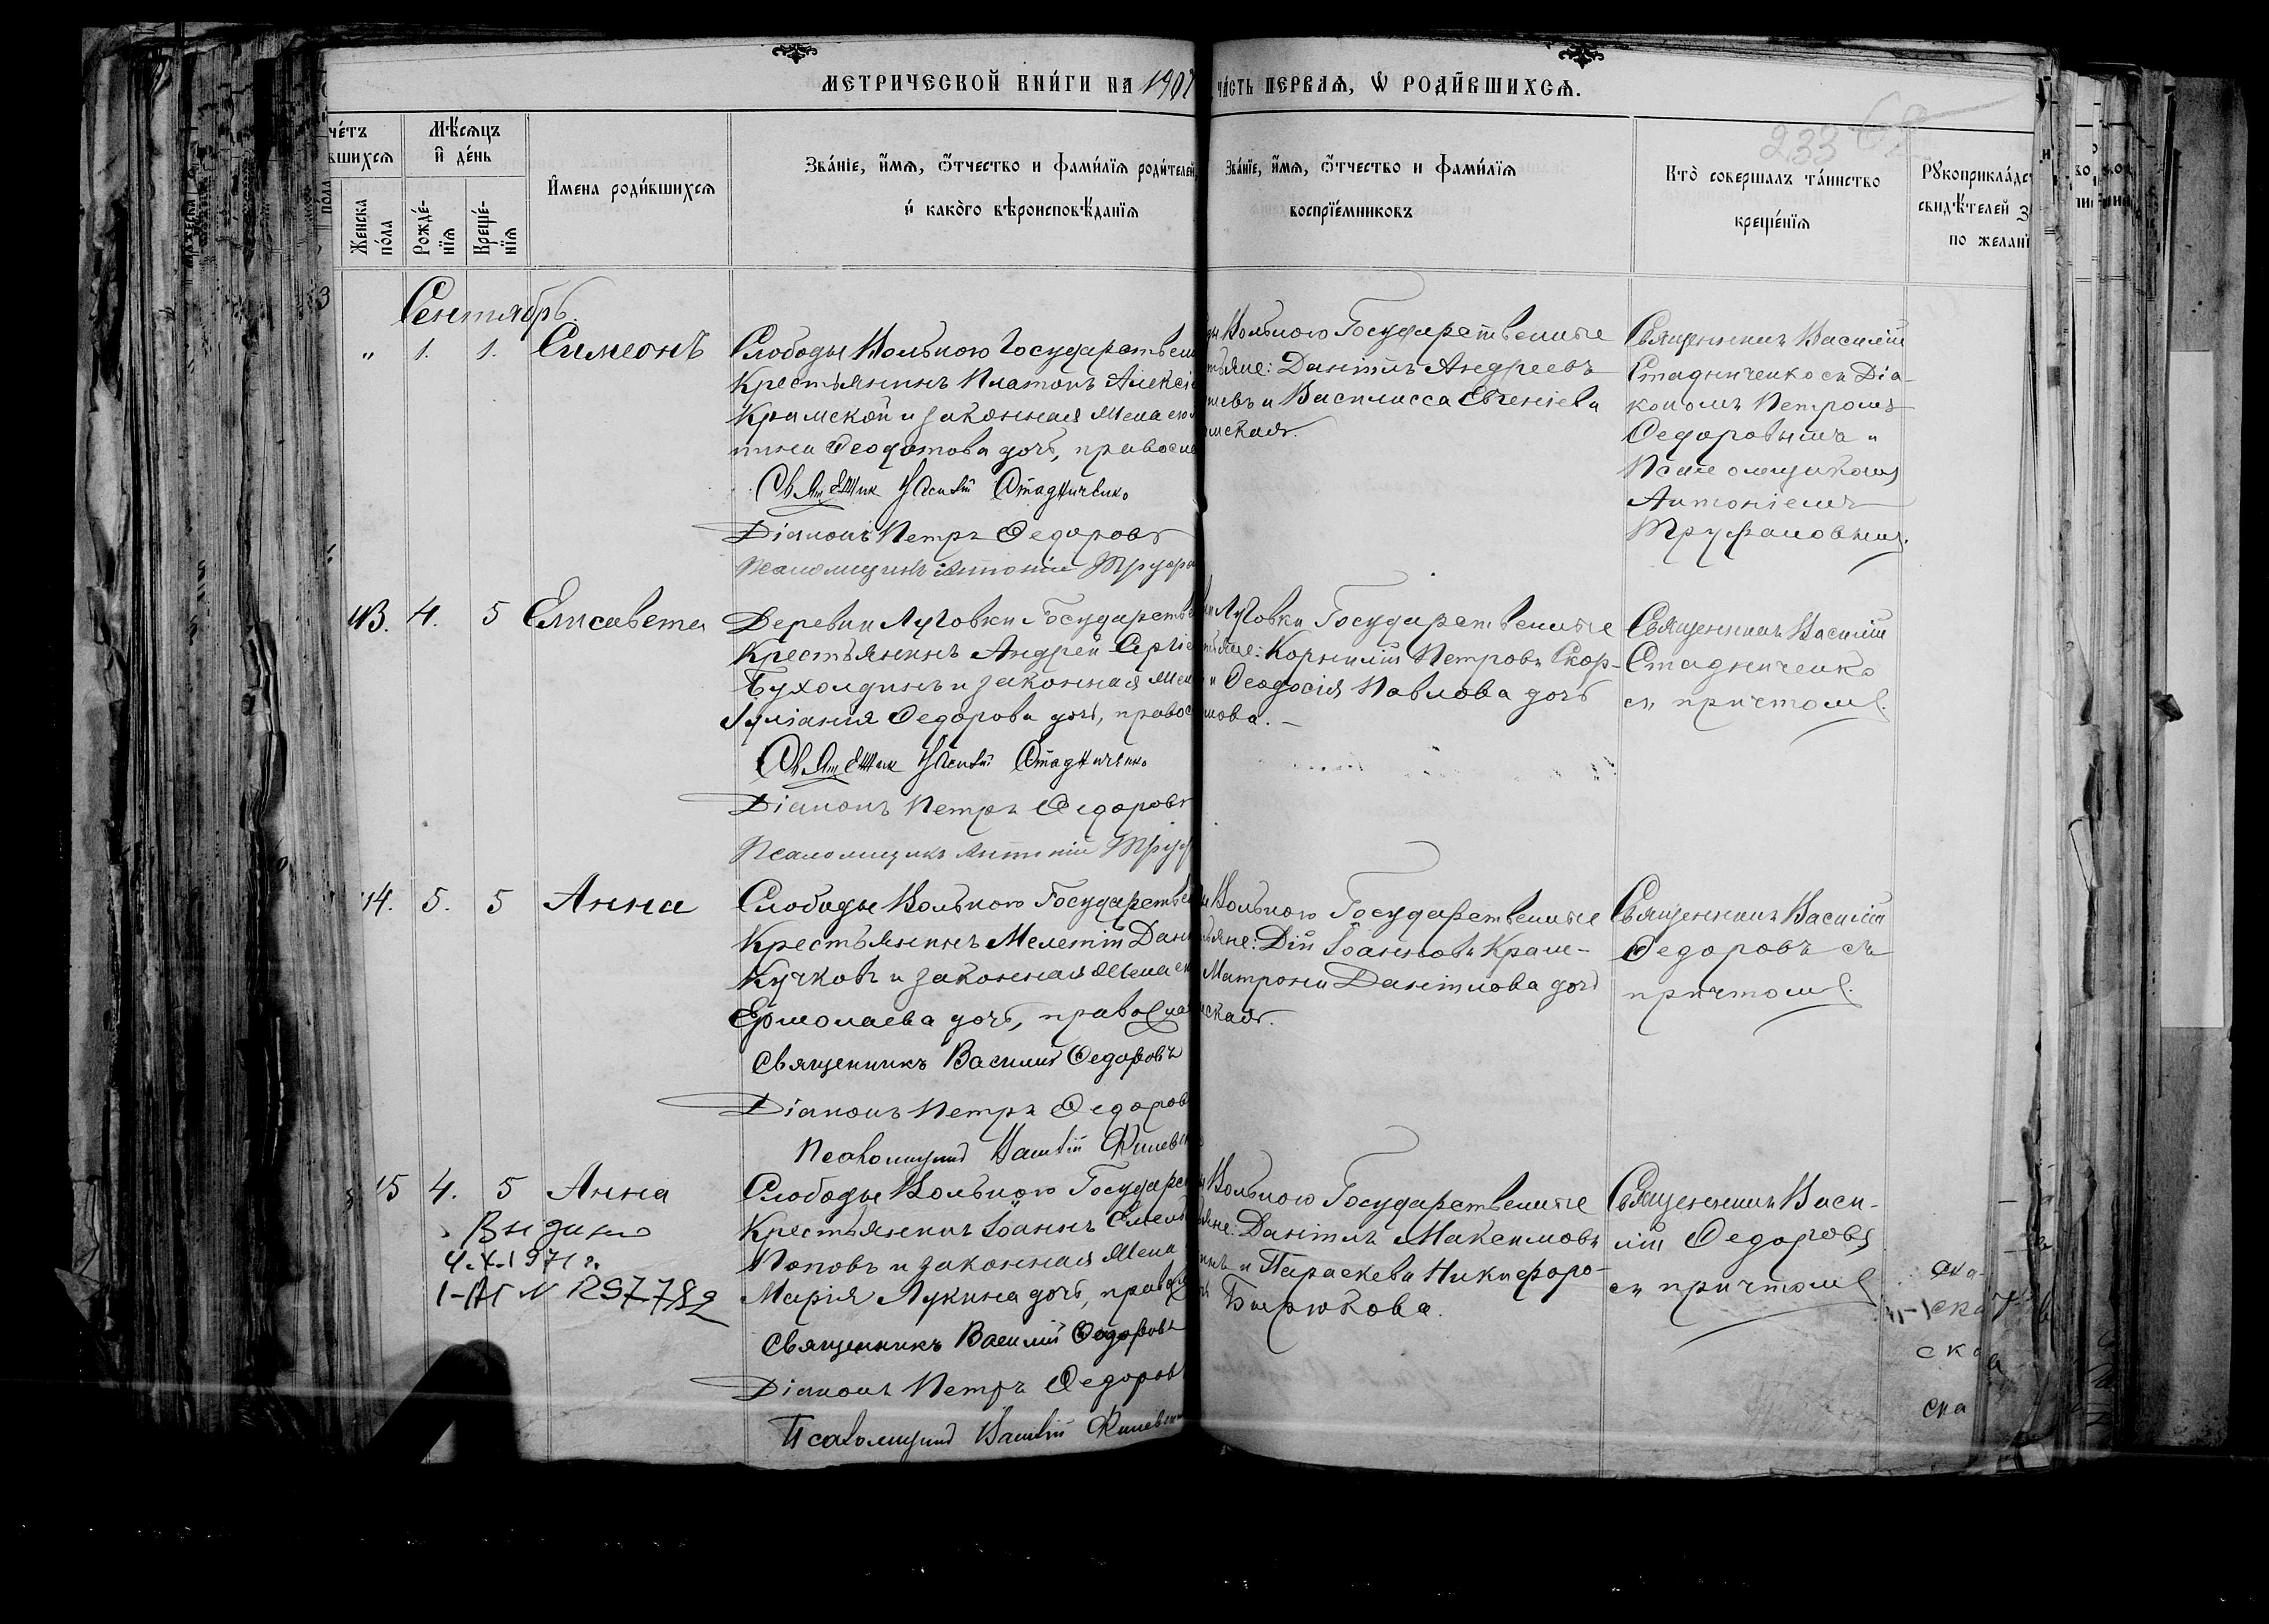 МЕТРИЧЕСКОЙ КНИ́ГИ НА 190
ЧА́СТЬ ПЕРВАѦ, Ѡ҆ РОДИ́ВШИХСѦ.
233
че́тъ
вшихсѧ
Мѣ́сѧцъ
и҆ де́нь
Женска
по́ла
Рожде́-
нїѧ
Креще́-
нїѧ
И҆мена роди́вшихсѧ
Зва́нїе, и҆́мѧ, ѻ҆́тчество и фами́лїѧ роди́телей,
и҆ како́гѡ вѣроисповѣ́данїѧ
Зва́нїе, и҆́мѧ, ѻ҆́тчество и фами́лїѧ
воспрїе́мниковъ
Кто̀ соверша́лъ та́инство
креще́нїѧ
Рꙋкоприкла́дс
свидѣ́телей з
по желанї
Сентябрь.
" 1. 1. Симеонъ
Слободы Вольного Государствен
Крестьянинъ Платонъ Алексі
Крамской и законная жена его
тина Феодотова дочь, правосла
Священник Василій Стадниченко
Діаконъ Петръ Федоровъ
Псаломщикъ Антоній Труфа
Вольного Государственные
тьяне: Даніилъ Андреевъ
шевъ и Василисса Евгеніева
мская.
Священникъ Василій
Стадниченко съ Діа-
кономъ Петромъ
Федоровымъ и
Псаломщикомъ
Антоніемъ
Труфановымъ.
43. 4. 5 Елисавета
Деревни Луговки Государстве
Крестьянинъ Андрей Сергіе
Бухолдинъ и законная жен
Іуліанія Федорова дочь, правос
Священник Василій Стадниченко
Діаконъ Петръ Федоровъ
Псаломщикъ Антоній Труф
Луговки Государственные
тьяне: Корнилій Петровъ Скор-
и Феодосія Павлова дочь
мова.
Священникъ Василій
Стадниченко
съ причтомъ.
44. 5. 5 Анна
Слободы Вольного Государствен
Крестьянинъ Мелетій Дан
Кучковъ и законная жена ег
Ермолаева дочь, правосла
Священникъ Василій Федоровъ
Діаконъ Петръ Федоров
Псаломщикъ
Вольного Государственные
ьяне: Дій Іоанновъ Крам-
Матрона Даніилова дочь
мская.
Священникъ Василій
Федоровъ съ
причтомъ.
15 4. 5 Анна
Выдано
4.X.1971 г.
N 1297782
Слободы Вольного Государс
Крестьянинъ Іоаннъ Емель
Поповъ и законная жена
Марія Лукина дочь, правосл
Священникъ Василій Федоровъ
Діаконъ Петръ Федоров
Псаломщикъ
Вольного Государственные
яне: Даніилъ Максимовъ
и Параскева Никифоро-
Бирюкова.
Священникъ Васи-
лій Федоровъ
съ причтомъ
ска
ска
ска